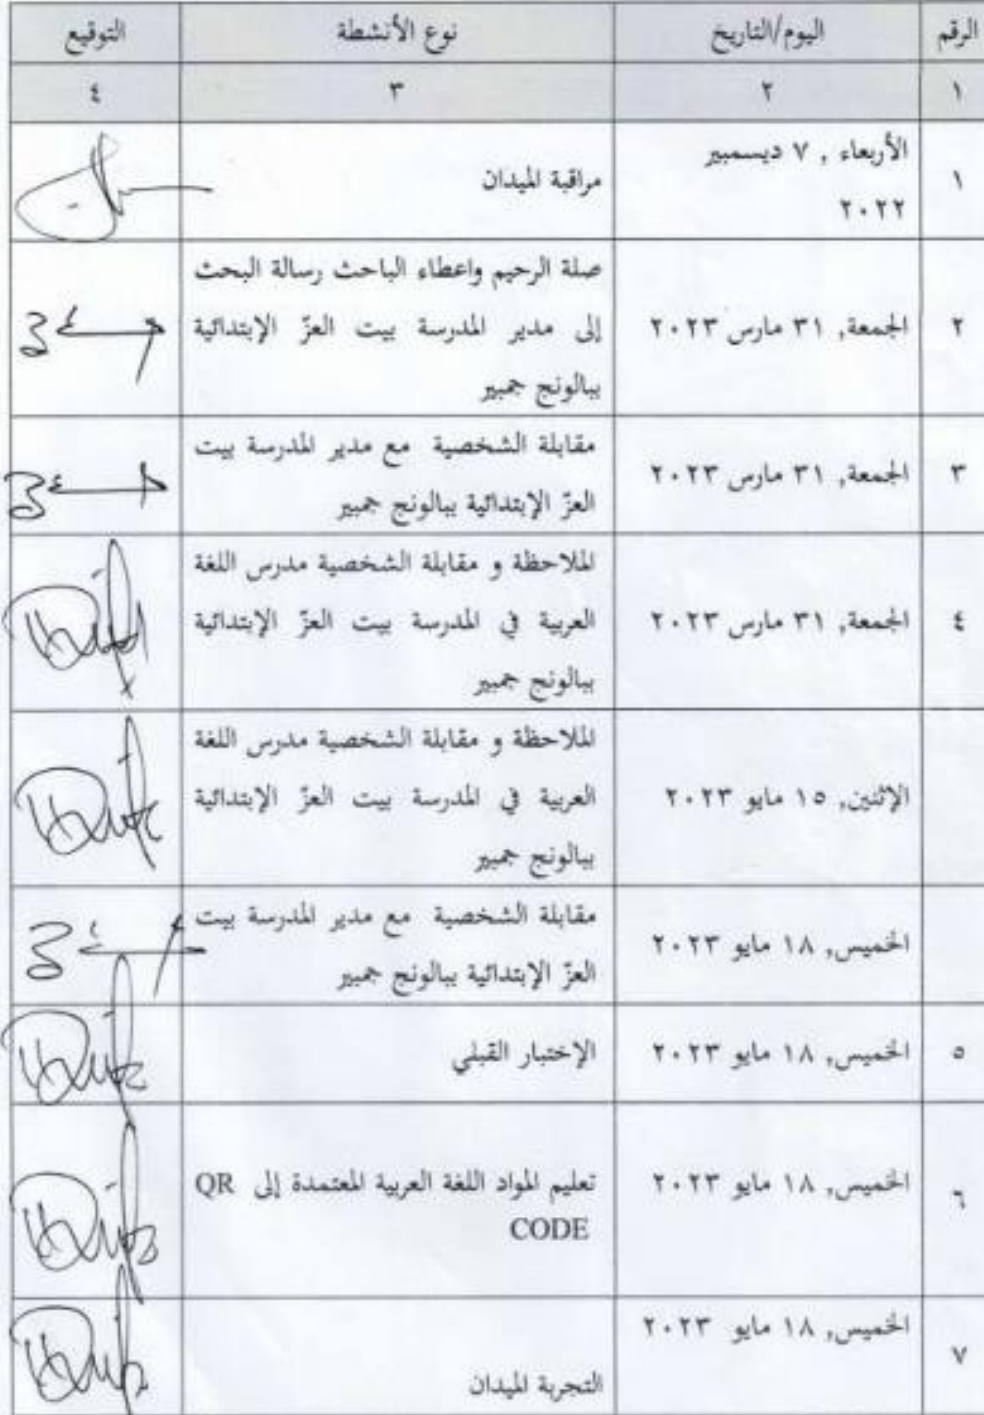 الرقم اليوم/التاريخ نوع الأنشطة التوقيع
١ ٢ ٣ ٤
١ الأربعاء , ٧ ديسمبير
٢٠٢٢
مراقبة الميدان
٢ الجمعة, ٣١ مارس ٢٠٢٣
صلة الرحيم واعطاء الباحث رسالة البحث
إلى مدير المدرسة بيت العزّ الإبتدائية
ببالونج جمبير
٣ الجمعة, ٣١ مارس ٢٠٢٣
مقابلة الشخصية مع مدير المدرسة بيت
العزّ الإبتدائية ببالونج جمبير
٤ الجمعة, ٣١ مارس ٢٠٢٣
الملاحظة و مقابلة الشخصية مدرس اللغة
العربية في المدرسة بيت العزّ الإبتدائية
ببالونج جمبير
الإثنين, ١٥ مايو ٢٠٢٣
الملاحظة و مقابلة الشخصية مدرس اللغة
العربية في المدرسة بيت العزّ الإبتدائية
ببالونج جمبير
الخميس, ١٨ مايو ٢٠٢٣
مقابلة الشخصية مع مدير المدرسة بيت
العزّ الإبتدائية ببالونج جمبير
٥ الخميس, ١٨ مايو ٢٠٢٣ الإختبار القبلي
٦ الخميس, ١٨ مايو ٢٠٢٣
تعليم المواد اللغة العربية المعتمدة إلى QR
CODE
٧ الخميس, ١٨ مايو ٢٠٢٣
التجربة الميدان